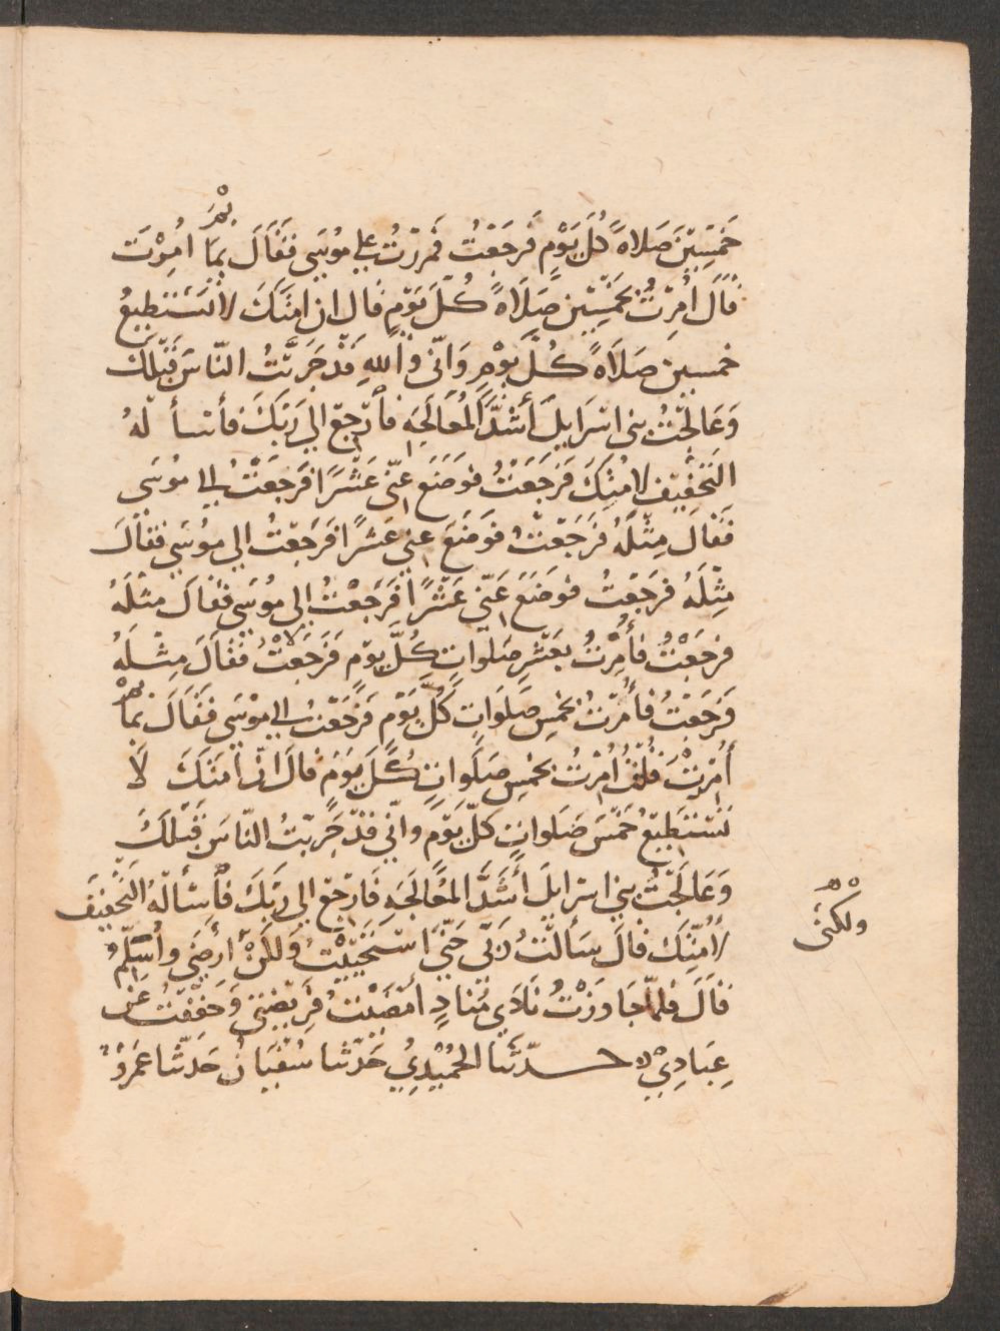 خَمْسِيْنَ صَلاةً كُلَّ يَوْمٍ فَرَجَعْتُ فَمَرَرْتُ علي مُوسَي فَقَالَ بِمَا بِمَ اُمِرْتَ
قَالَ اُمِرْتُ بخَمْسِيْنَ صَلَاةً كُلَّ يَوْمٍ قال ان امَّتَكَ لا تَسْتَطِيعُ
خمسين صَلَاةً كُلَّ يَوْمٍ وَانّي واللهِ قَدْ جَرَّبْتُ النّاسَ قَبْلَكَ
وَعَالَجْتُ بني اسرَايلَ أَشَدَّ المُعَالَجَهِ فارْجِعْ الي رَبّكَ فأسأ لْهُ
التَخْفِيْفَ لامّتِكَ فَرَجَعْتُ فوَضَعَ عنّي عَشْرًا فَرَجَعْتُ الي مُوسَي
فَقَالَ مِثْلَهُ فَرَجَعْتُ فوَضَعَ عنّي عَشرًا فَرَجَعْتُ الي مُوسَي فقالَ
مِثْلَهُ فرجَعْتُ فوَضَعَ عَنّي عَشْرًا فَرَجَعْتُ الي مُوسَي فَقَالَ مثْلَهُ
فرجَعْتُ فأُمِرْتُ بعَشْرِ صَلَواتٍ كُلَّ يوْمٍ فَرَجَعْتُ فَقَالَ مِثْلَهُ
فرَجَعْتُ فأُمرْتُ بخمسِ صَلَوَاتٍ كُلَّ يَوْمٍ فَرَجَعْتُ الي مُوْسَي فَقَالَ بمَا بم
أُمِرْتَ قُلْتُ اُمِرْتُ بخمْسِ صَلَواتٍ كُلَّ يَوْمٍ قالَ انّ امّتَكَ لَا
تَسْتَطِيْعُ خَمْسَ صَلَواتٍ كلَّ يَوْمٍ وانّي قَدْ جَرّبْتُ النّاسَ قَبْلَكَ
وَعَالَجْتُ بني اسْرايلَ أَشَدَّ المُعَالَجَهِ فَارْجعْ الي رَبّكَ فأسْألْهُ التّخْفِيفَ
لاُمّتِكَ قالَ سَألْتُ رَبّي حَتّي اسْتَحْيَيْتُ وَلكن أرضَي واُسَلّمُ
ولكنّي
قَالَ فلمّا جَاوَزْتُ نَادَي مُنادٍ أمْضَيْتُ فَرِيْضَتِي وَخَفّفْتُ عَنْ
عِبَادِيْ ه حـدّثَنا الحُمَيْدِيُ حَدّثنا سُفْيَانُ حَدّثنا عَمْرُو